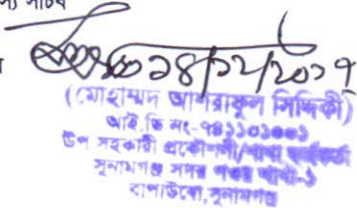 সচিব
১৪/১২/২০১৭
(মোহাম্মদ আশরাফুল সিদ্দিকী)
আই.ডি নং-৭৪১১০১০০১
উপ সহকারী প্রকৌশলী/শাখা কর্মকর্তা
সুনামগঞ্জ সদর পওর শাখা-১
বাপাউবো, সুনামগঞ্জ